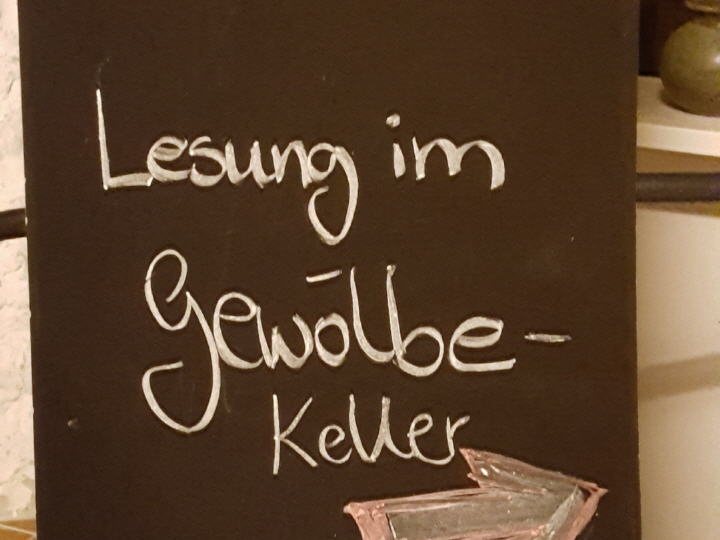 Lesung im
Gewölbe-
Keller